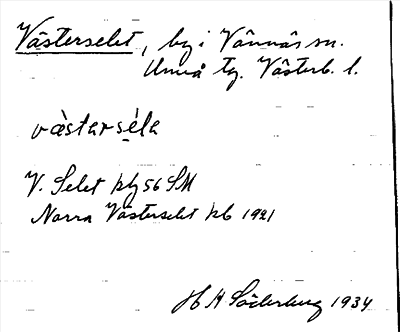 Västerselet, by i Vännäs sn.
Umeå tg. Västerb. l.
vàstərséla
V. Selet kbg 56 SM
Norra Västerselet kb 1921
H H Söderberg 1934